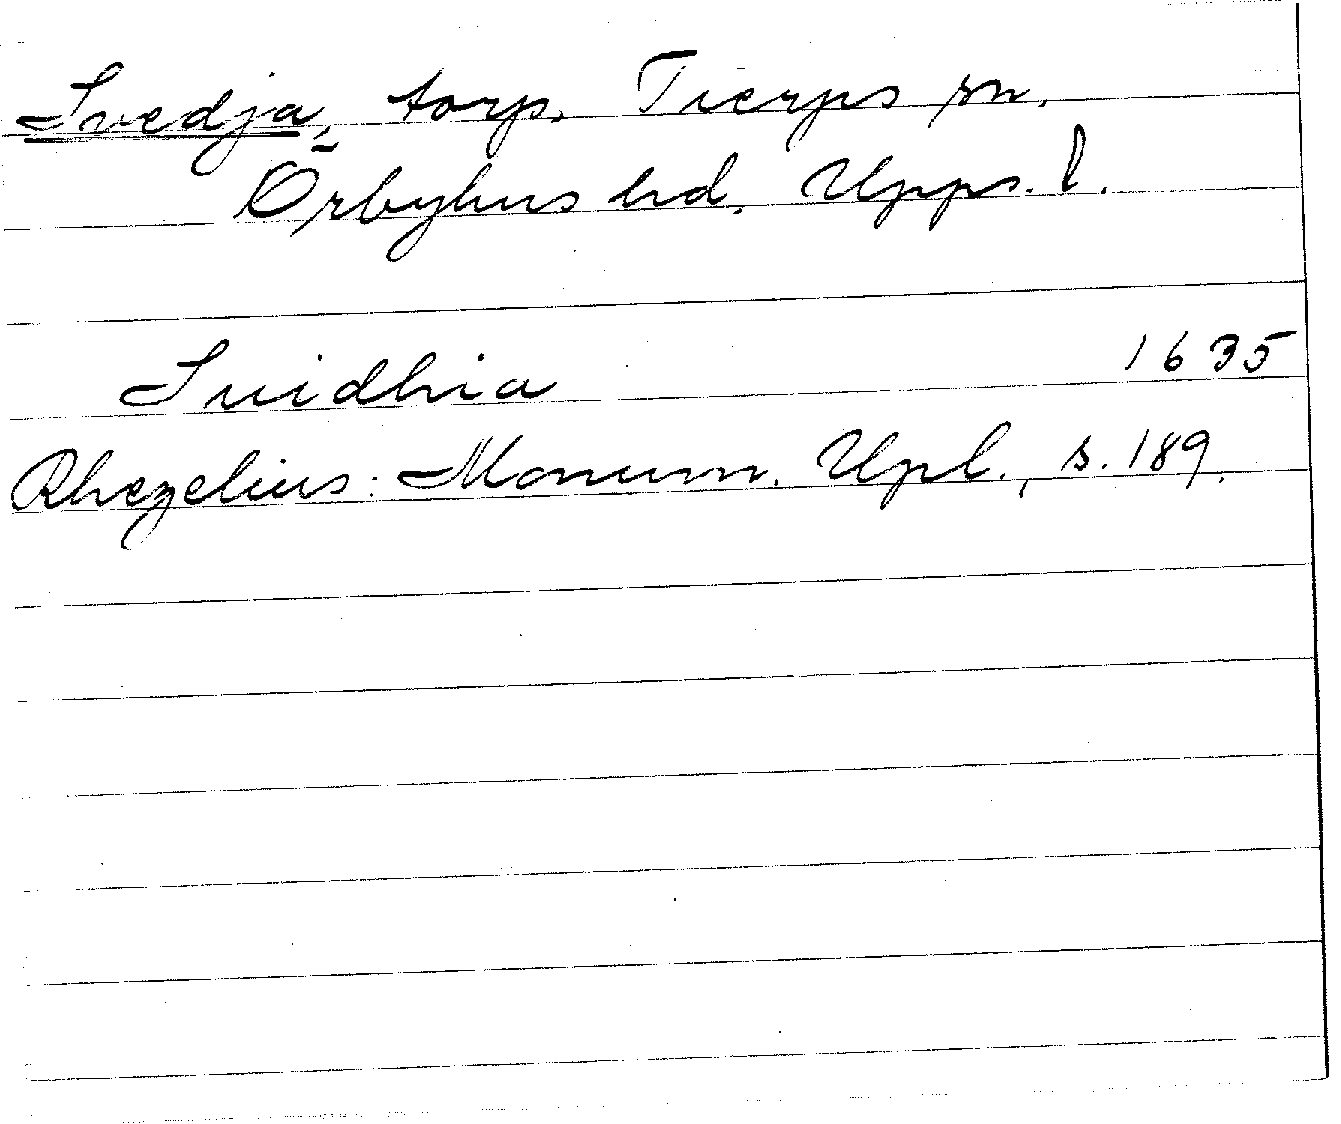 Svedja, torp. Tierps sn.
Örbyhus hd. Upps. l.
Suidhia 1635
Rhezelius: Monum. Upl., s. 189.